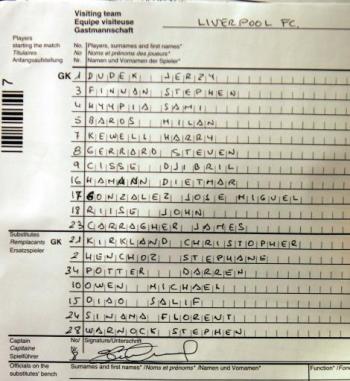 Visiting team
Equipe visiteuse
Gastmannschaft
LIVERPOOL FC.
Players starting the match
Titulaires
Anfangsaufstellung
No. Players, surnames and first names*
No Noms et prénoms des joueurs*
Nr. Namen und Vornamen der Spieler*
7
GK 1 DUDEK JERZY
3 FINNAN STEPHEN
4 HYYPIA SAMI
5 BAROS MILAN
7 KEWELL HARRY
8 GERRARD STEVEN
9 CISSE DJIBRIL
16 HAMANN DIETMAR
17 GONZALEZ JOSE MIGUEL
18 RIISE JOHN
23 CARRAGHER JAMES
Substitutes
Remplacants
Ersatzspieler
GK 21 KIRKLAND CHRISTOPHER
2 HENCHOZ STEPHANE
34 POTTER DARREN
10 OWEN MICHAEL
15 DIAO SALIF
24 SINAMA FLORENT
28 WARNOCK STEPHEN
Captain
Capitaine
Spielführer
No/ Signature/Unterschrift
No
Nr.
8
Officials on the substitutes' bench
Surnames and first names* /Noms et prénoms* /Namen und Vornamen*
Function*